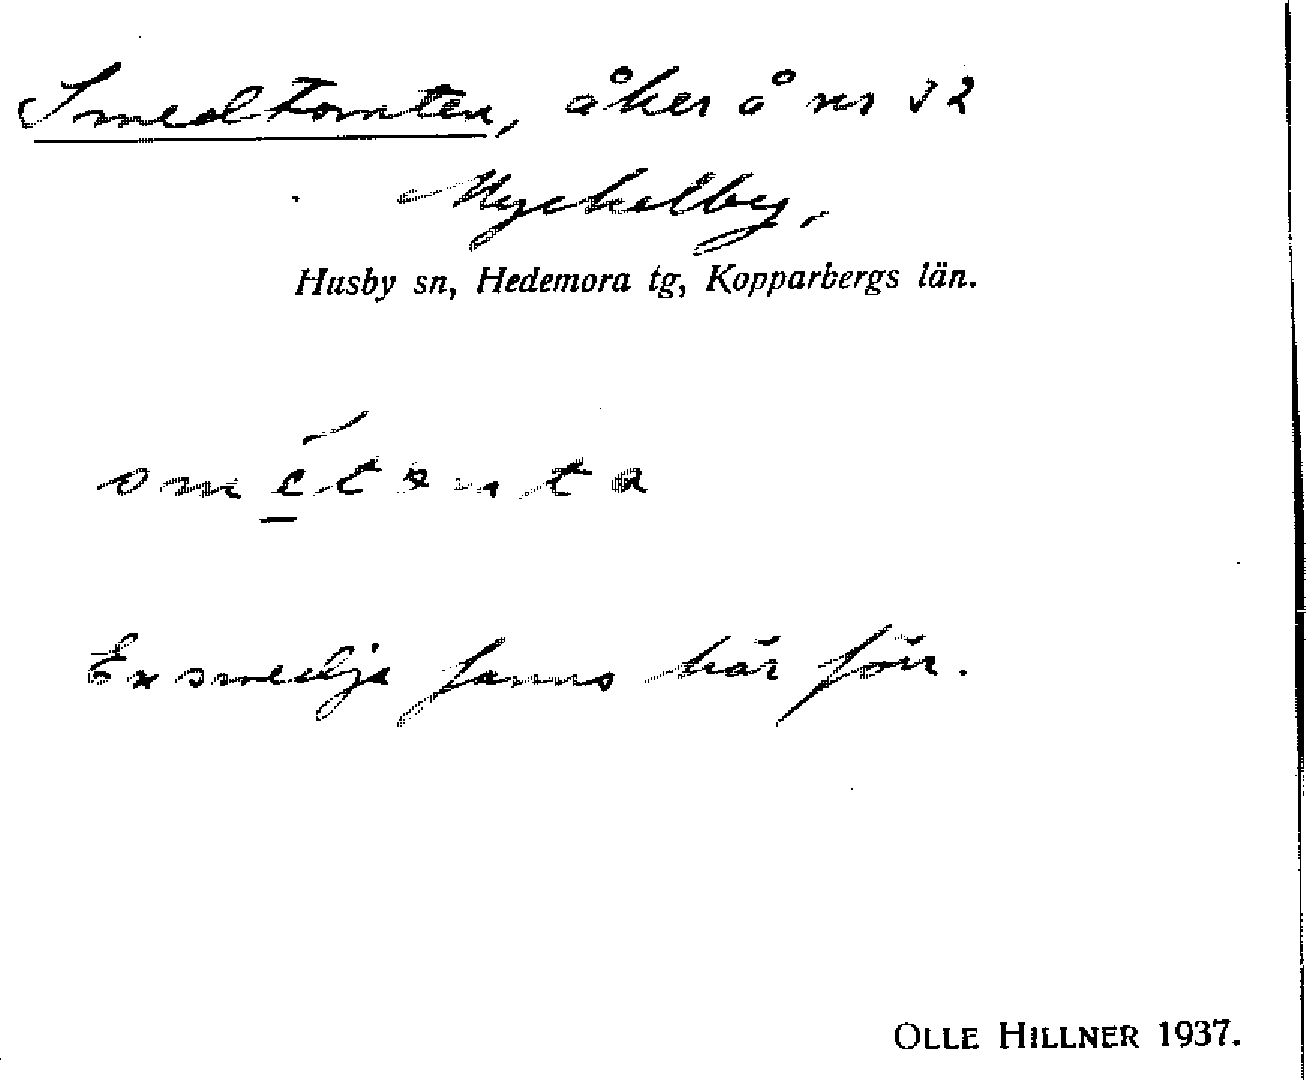 Smedtomten, åker å nr 52
Myckelby,
Husby sn, Hedemora tg, Kopparbergs län.
En smedja fanns här förr.
OLLE HILLNER 1937.